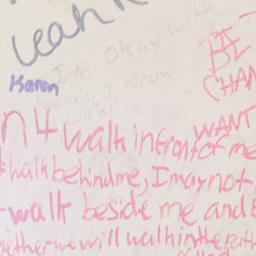 Leah
I'm Okay with
BE
Karen
I know
CHAN
WANT
n 4 walk infront of me
walk behind me, I may not
-walk beside me and b
gether we will walk in the path